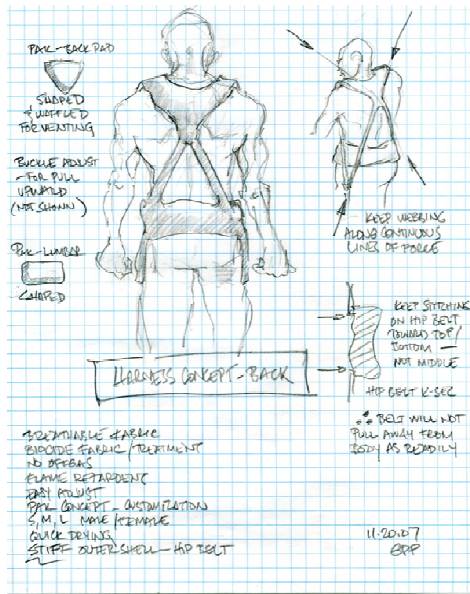 PAK-BACK PAD
SHAPED
& WAFFLED
FOR VENTING
BUCKLE ADJUST
-FOR PULL
UPWARD
(NOT SHOWN)
PAK-LUMBAR
SHAPED
KEEP WEBBING
ALONG CONTINUOUS
LINES OF FORCE
KEEP STITCHING
ON HIP BELT
TOWARD TOP/
BOTTOM —
NOT MIDDLE
HIP BELT X-SEC
∴ BELT WILL NOT
PULL AWAY FROM
BODY AS READILY
HARNESS CONCEPT-BACK
BREATHABLE FABRIC
BIOCIDE FABRIC/TREATMENT
NO OFFGAS
FLAME RETARDENT
EASY ADJUST
PAK CONCEPT - CUSTOMIZATION
S, M, L MALE/FEMALE
QUICK DRYING
STIFF OUTER SHELL - HIP BELT
11.20.07